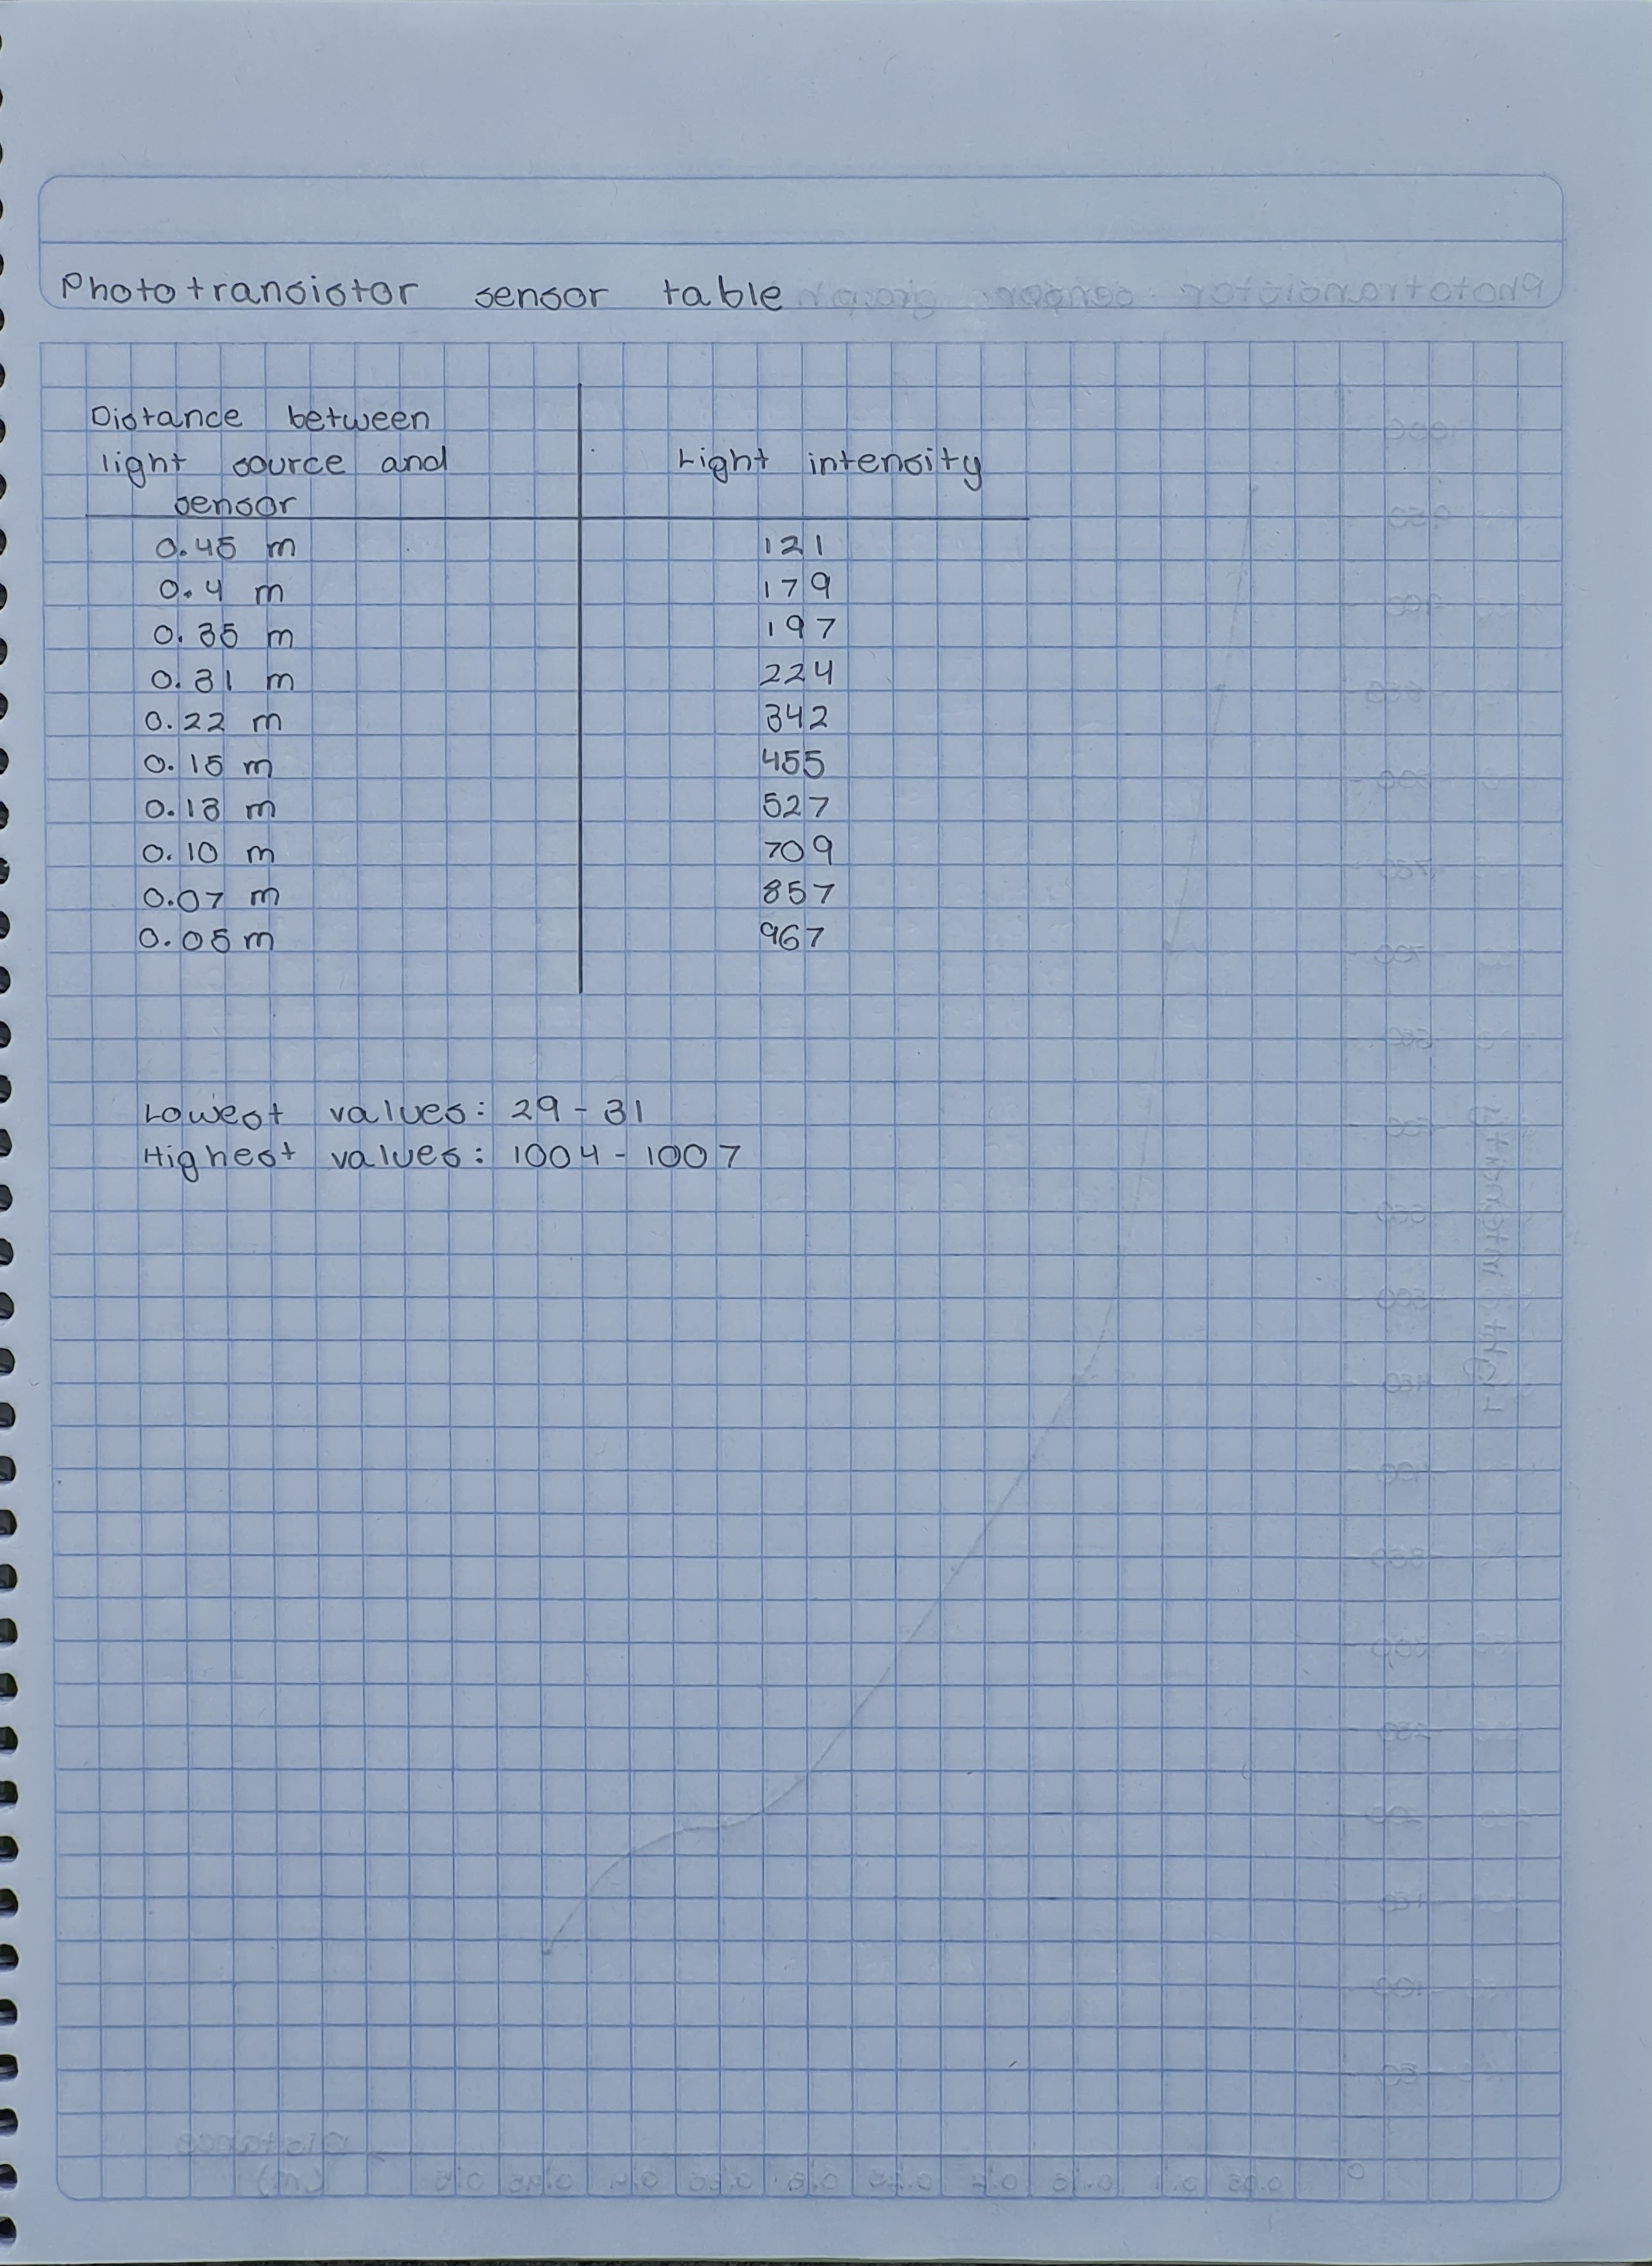 Phototransistor sensor table
Distance between
light source and
sensor
Light intensity
0.45 m 121
0.4 m 179
0.35 m 197
0.31 m 224
0.22 m 342
0.15 m 455
0.13 m 527
0.10 m 709
0.07 m 857
0.05 m 967
Lowest values: 29 - 31
Highest values: 1004 - 1007